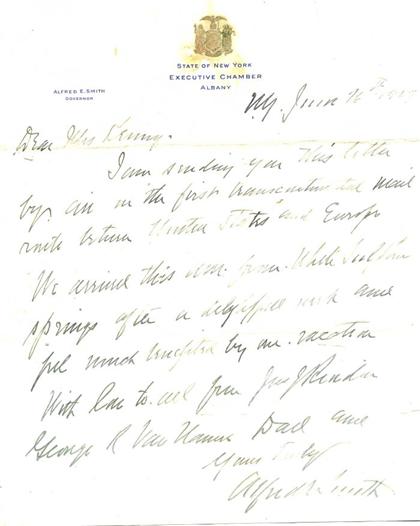 STATE OF NEW YORK
EXECUTIVE CHAMBER
ALBANY
ALFRED E. SMITH
GOVERNOR
NY. June 16th
Dear Mrs Kenny.
I am sending you this letter
by air in the first transcontinental mail
route between United States and Europe
We arrived this from White Sulphur
springs after a delightful week and
feel much benefited by our vacation
With love to all from Jas J Riordan
George R Van Namee and
Yours truly
Alfred E Smith